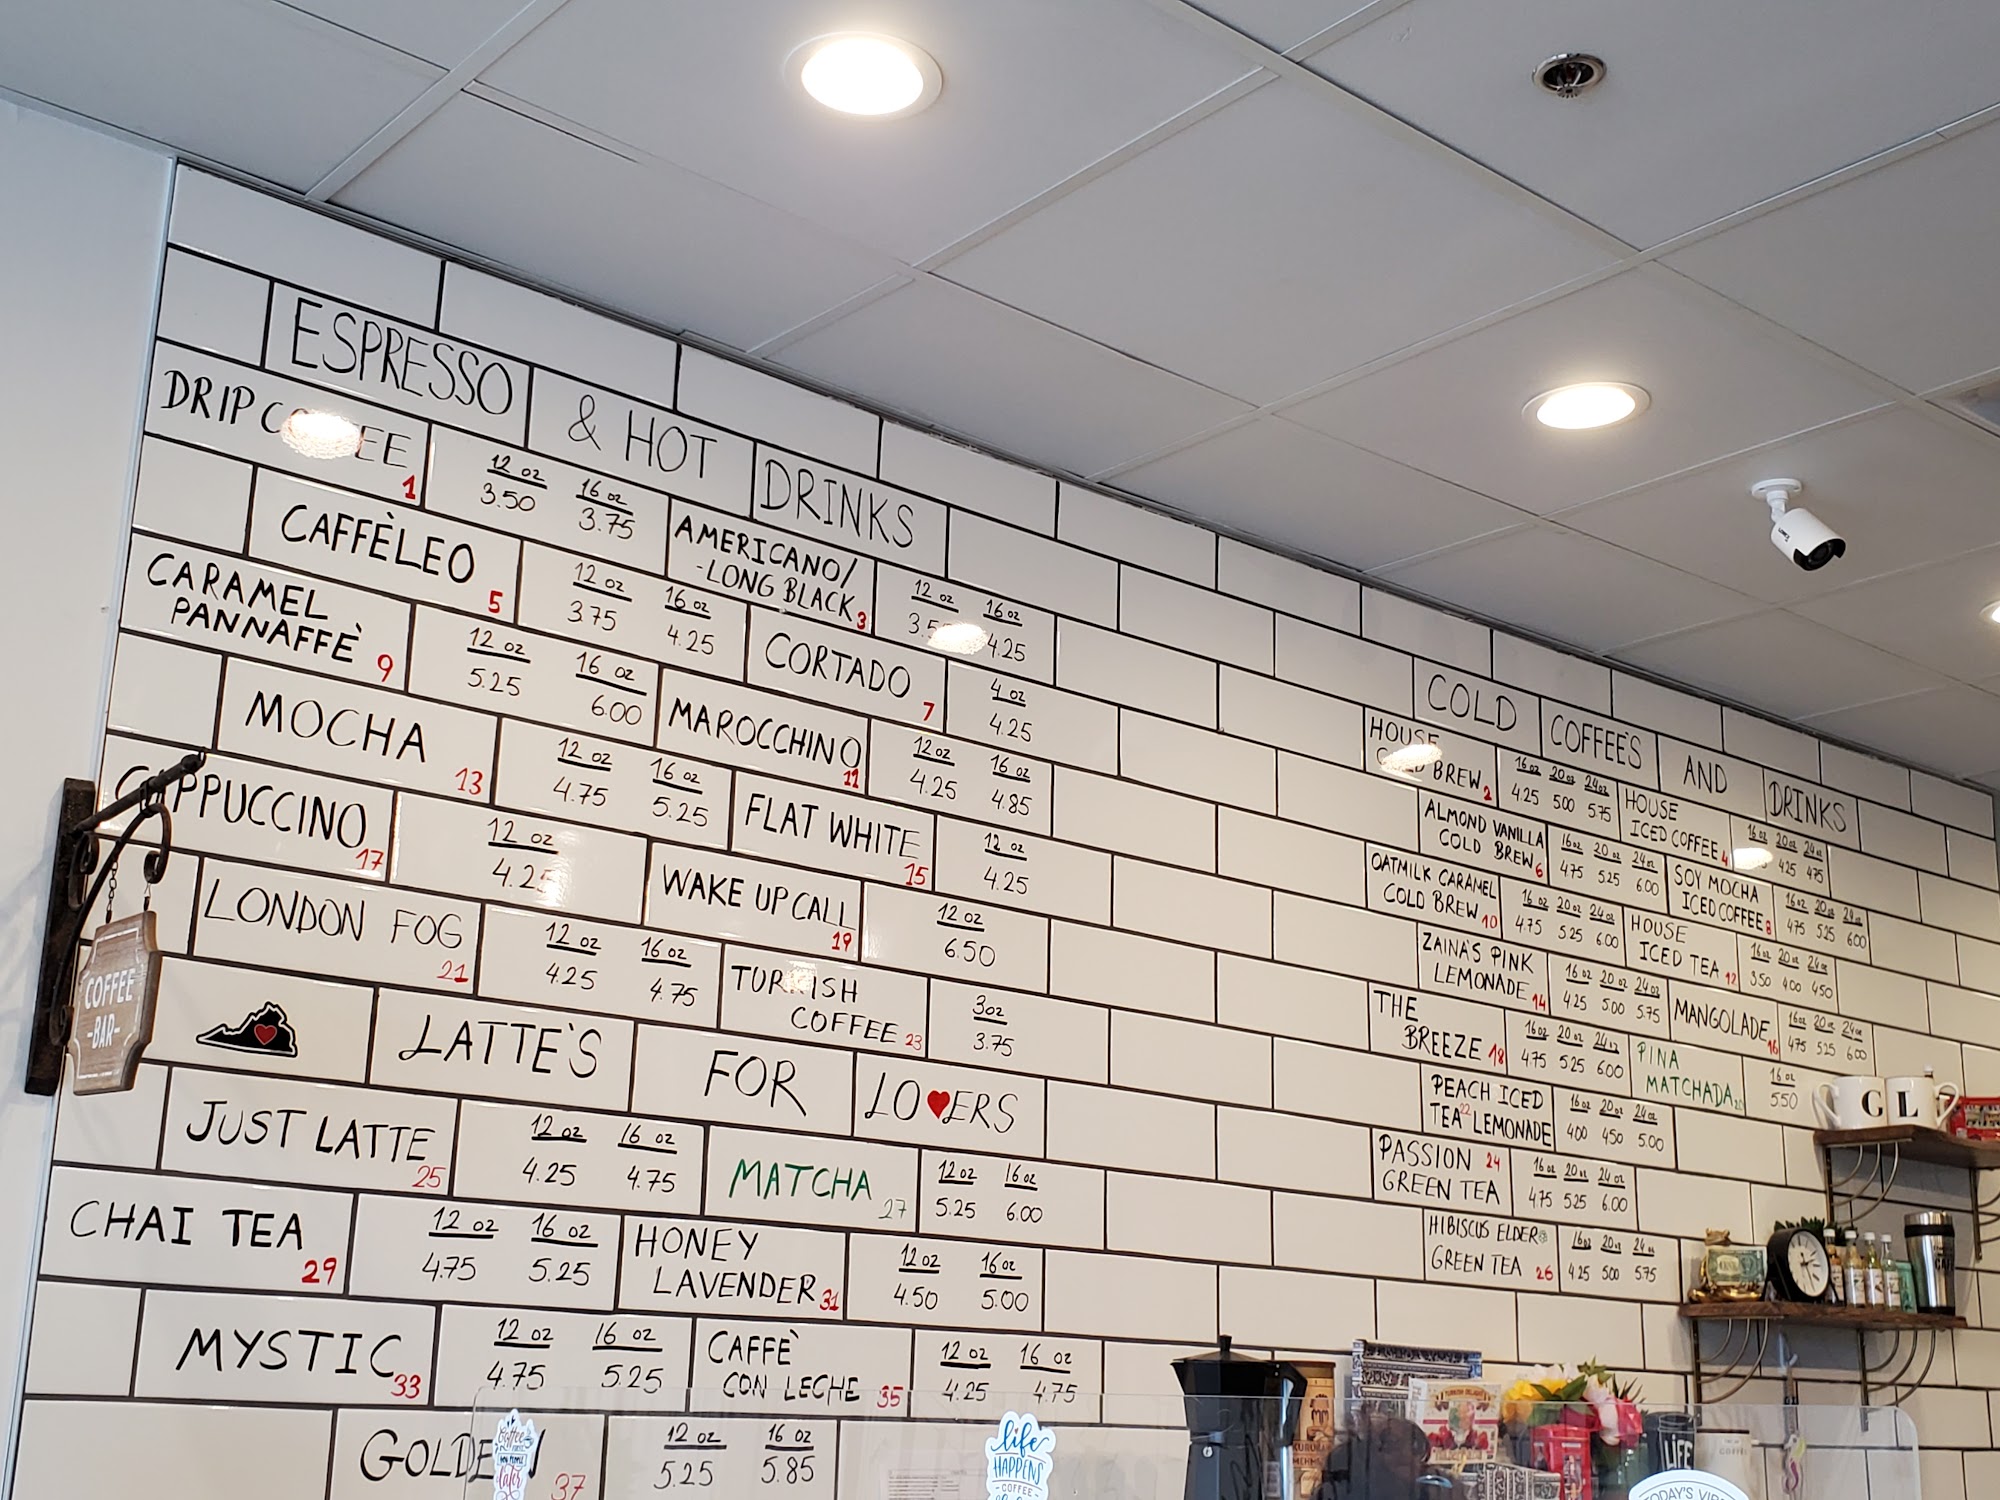 ESPRESSO & HOT DRINKS
DRIP COFFEE 1
12 oz 16 oz
3.50 3.75
AMERICANO/
-LONG BLACK 3
12 oz 16 oz
4.25
CAFFÈLEO 5
12 oz 16 oz
3.75 4.25
CORTADO 7
4 oz
4.25
CARAMEL
PANNAFFÈ 9
12 oz 16 oz
5.25 6.00
MAROCCHINO 11
12 oz 16 oz
4.25 4.85
MOCHA 13
12 oz 16 oz
4.75 5.25
FLAT WHITE 15
12 oz
4.25
CAPPUCCINO 17
12 oz
4.25
WAKE UP CALL 19
12 oz
6.50
LONDON FOG 21
12 oz 16 oz
4.25 4.75
TURKISH
COFFEE 23
3oz
3.75
LATTE'S FOR LO♥ERS
JUST LATTE 25
12 oz 16 oz
4.25 4.75
MATCHA 27
12 oz 16 oz
5.25 6.00
CHAI TEA 29
12 oz 16 oz
4.75 5.25
HONEY
LAVENDER 31
12 oz 16 oz
4.50 5.00
MYSTIC 33
12 oz 16 oz
4.75 5.25
CAFFÈ
CON LECHE 35
12 oz 16 oz
4.25 4.75
GOLDEN 37
12 oz 16 oz
5.25 5.85
COLD COFFEE'S AND DRINKS
HOUSE
COLD BREW 2
16 oz 20 oz 24 oz
4.25 500 5.75
HOUSE
ICED COFFEE 4
16 oz 20 oz 24 oz
425 475
ALMOND VANILLA
COLD BREW 6
16 oz 20 oz 24 oz
475 525 6.00
SOY MOCHA
ICED COFFEE 8
16 oz 20 oz 24 oz
475 525 600
OATMILK CARAMEL
COLD BREW 10
16 oz 20 oz 24 oz
4.75 5.25 6.00
HOUSE
ICED TEA 12
16 oz 20 oz 24 oz
350 400 450
ZAINA'S PINK
LEMONADE 14
16 oz 20 oz 24 oz
4.25 5.00 5.75
MANGOLADE 16
16 oz 20 oz 24 oz
475 525 600
THE
BREEZE 18
16 oz 20 oz 24 oz
475 525 600
PINA
MATCHADA 20
16 oz
550
PEACH ICED
TEA 22 LEMONADE
16 oz 20 oz 24 oz
400 450 5.00
PASSION 24
GREEN TEA
16 oz 20 oz 24 oz
4.75 525 6.00
HIBISCUS ELDER
GREEN TEA 26
16 oz 20 oz 24 oz
425 500 5.75
COFFEE
-BAR-
G L
coffee
later
life
HAPPENS
COFFEE
LiFE